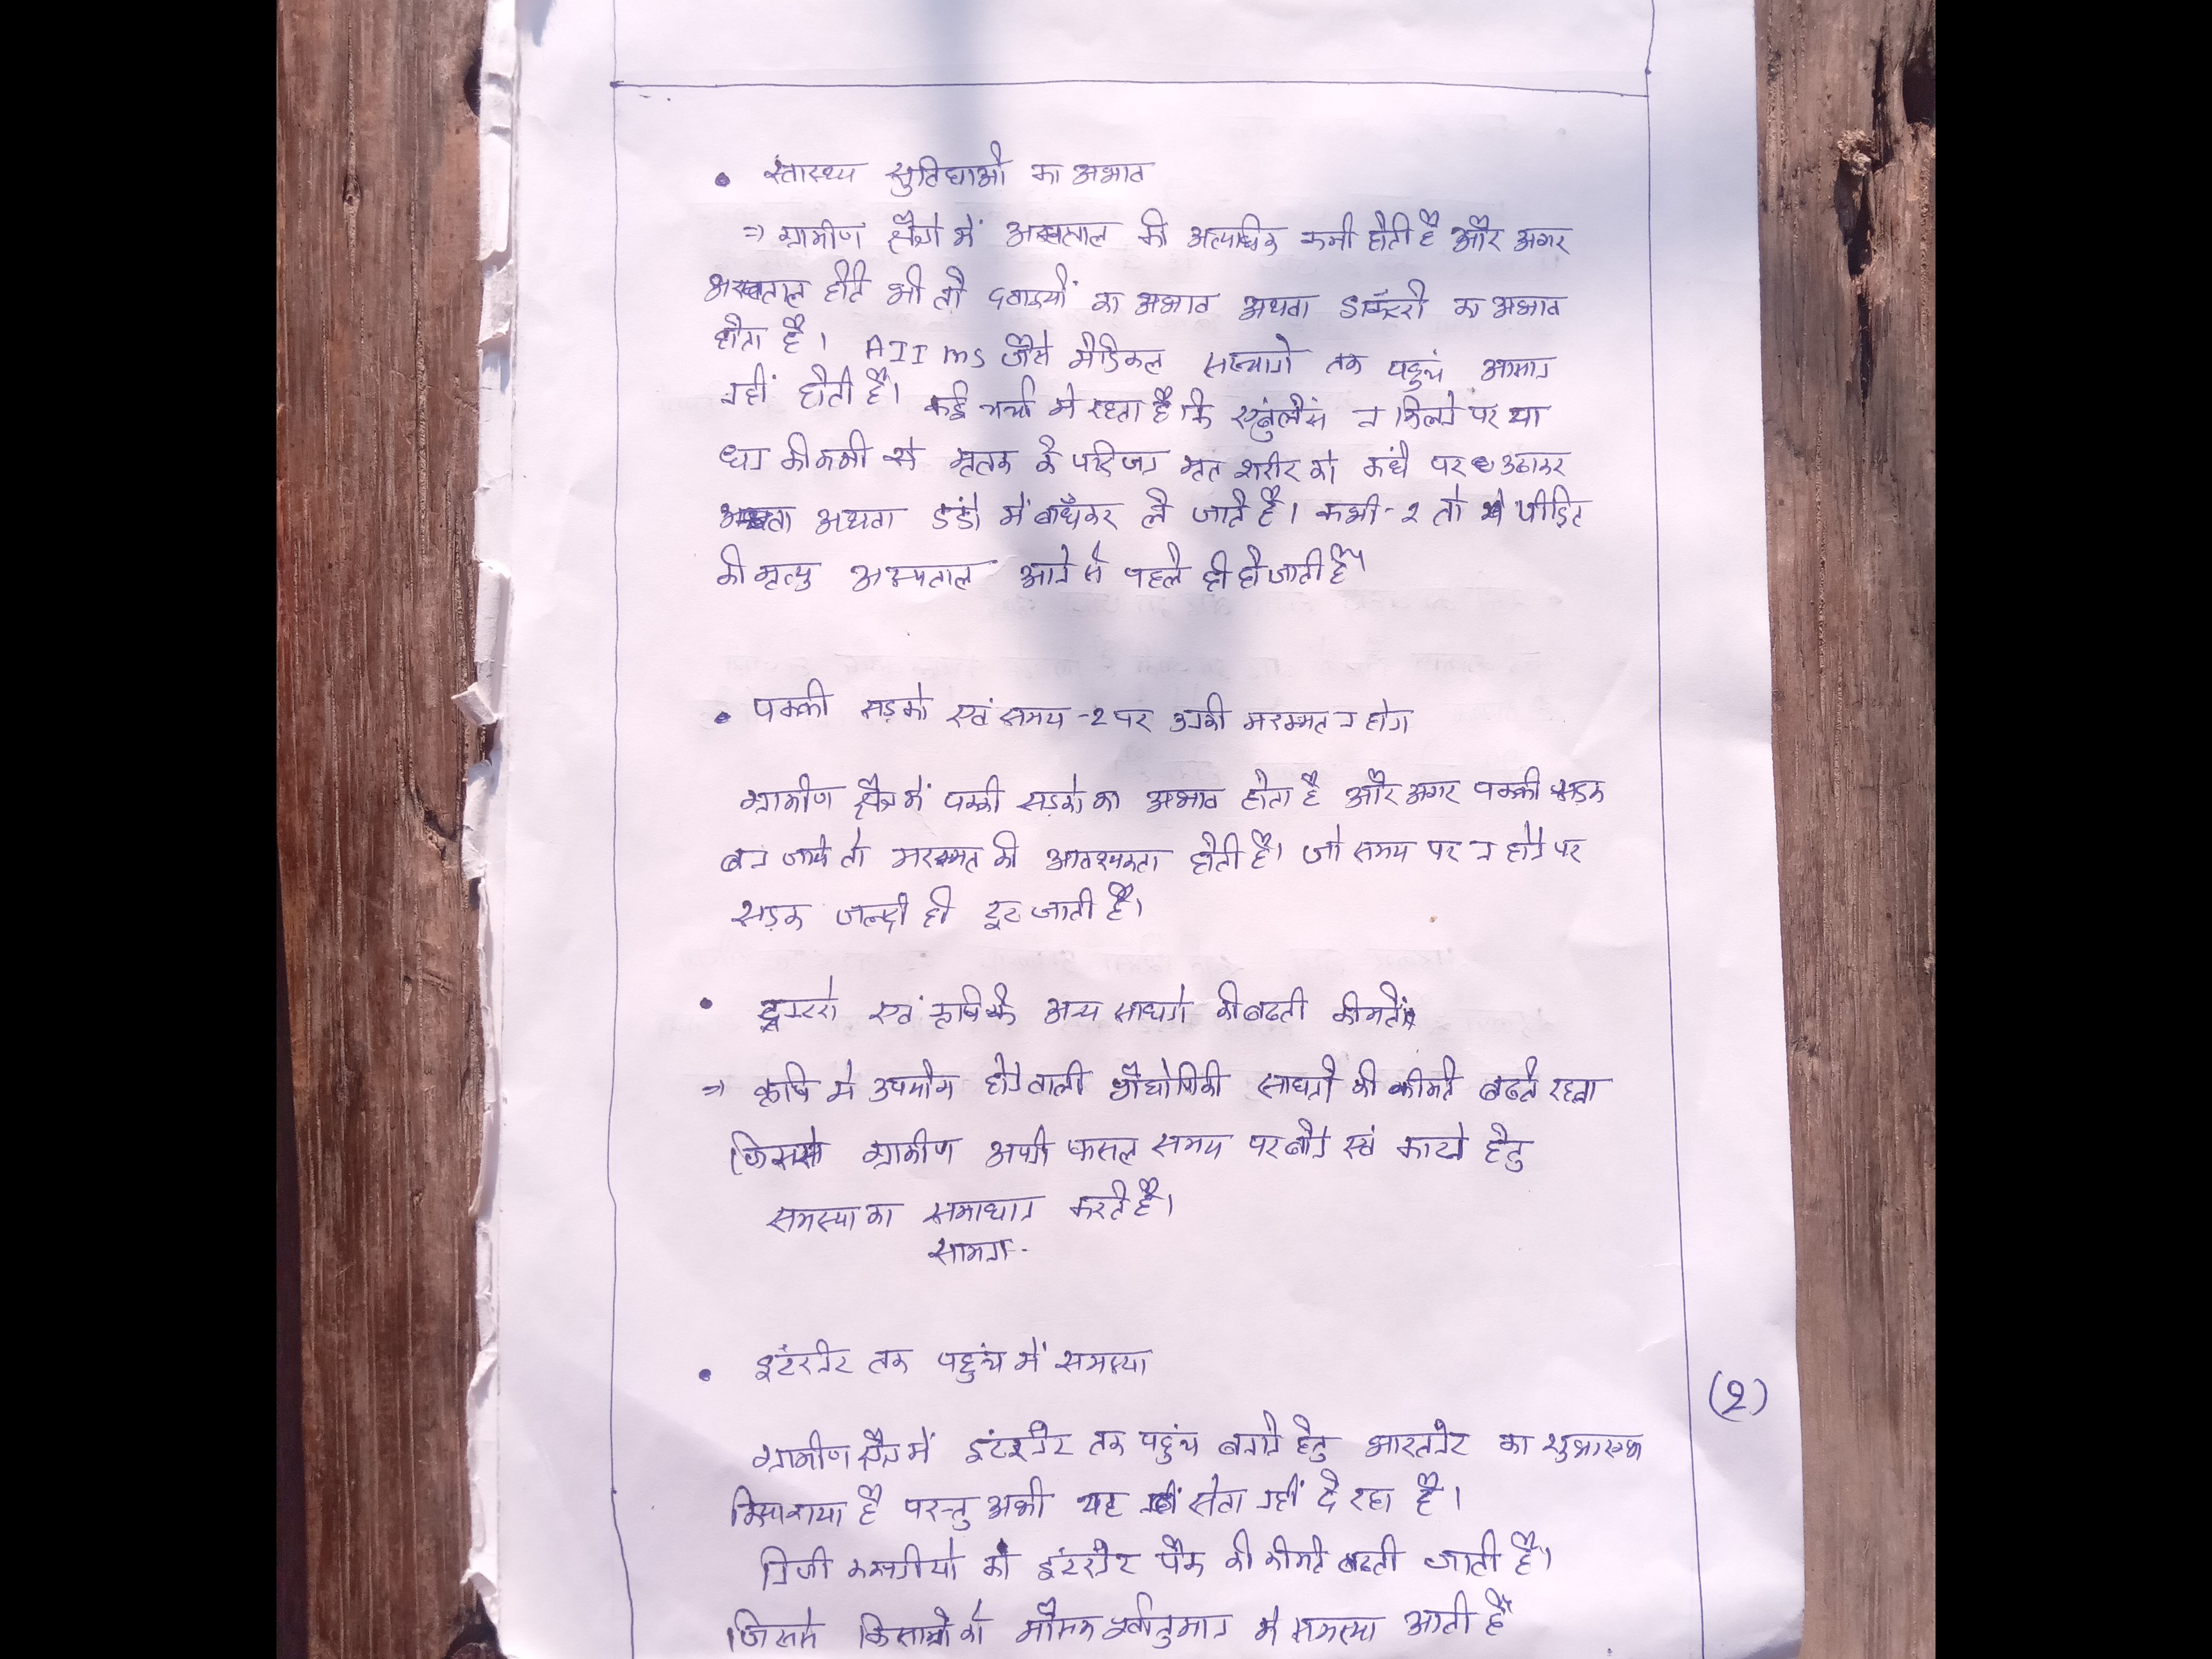 • स्वास्थ्य सुविधाओ का अभाव
⇒ ग्रामीण क्षैत्रो में अस्पताल की अत्याधिक कमी होती है और अगर
अस्पताल होते भी तो दवाइयों का अभाव अथवा डॉक्टरो का अभाव
होता है। AIIMS जैसे मेडिकल संस्थानो तक पहुचं आसान
नहीं होती है। कई चर्चा मे रहता है कि एंबुलेंस न मिलने पर या
धन की कमी से मृतक के परिजन मृत शरीर को कंधे पर उठाकर
अथवा डंडो में बाँधकर ले जाते है। कभी-2 तो पीडित
की मृत्यु अस्पताल आने से पहले ही हो जाती है।
• पक्की सड़को एवं समय-2 पर उनकी मरम्मत न होना
ग्रामीण क्षैत्र में पक्की सड़को का अभाव होता है और अगर पक्की सड़क
बन जाये तो मरम्मत की आवश्यकता होती है। जो समय पर न होने पर
सड़क जल्दी ही टूट जाती है।
• एवं कृषि के अन्य साधनो की बढती कीमतें
⇒ कृषि मे उपयोग होने वाली औधोगिकी साधनो की कीमते बढते रहना
जिससे ग्रामीण अपनी फसल समय पर बोने एवं काटने हेतु
समस्या का समाधान करते है।
सामना-
• इटंरनेट तक पहुचं में समस्या
ग्रामीण क्षैत्र में इटंरनेट तक पहुचं बनाने हेतु भारतनेट का शुभारम्भ
किया गया है परन्तु अभी यह सेवा नहीं दे रहा है।
निजी कम्पनीयो के इटंरनेट पैक की कीमते बढती जाती है।
जिससे किसानो को मौसम पूर्वानुमान मे समस्या आती है
(2)